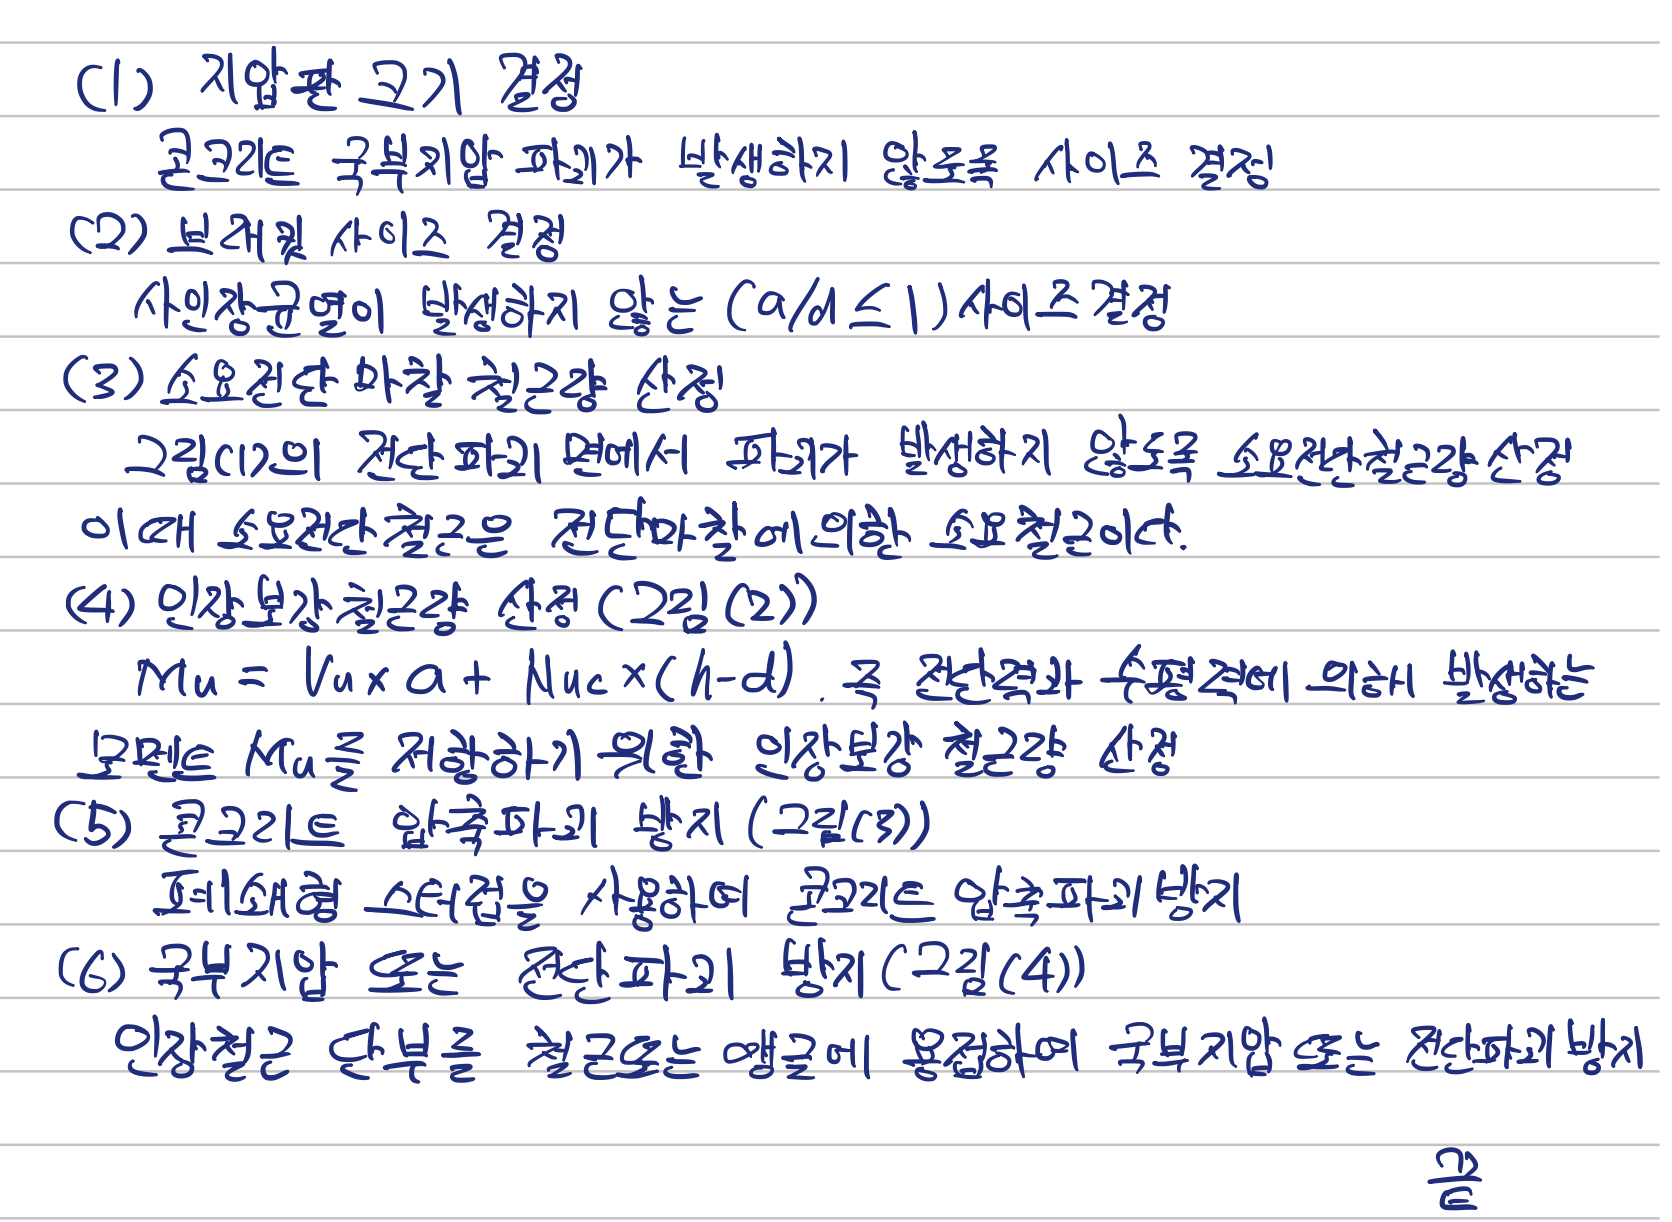 (1) 지압판 크기 결정
콘크리트 국부지압 파괴가 발생하지 않도록 사이즈 결정
(2) 브래킷 사이즈 결정
사인장균열이 발생하지 않는 (a/d ≤ 1) 사이즈 결정
(3) 소요전단 마찰 철근량 산정
그림(1)의 전단 파괴 면에서 파괴가 발생하지 않도록 소요전단철근량 산정
이때 소요전단철근은 전단마찰에 의한 소요철근이다.
(4) 인장보강철근량 산정 (그림 (2))
Mu = Vu × a + Nuc × (h-d). 즉 전단력과 수평력에 의해 발생하는
모멘트 Mu를 저항하기 위한 인장보강 철근량 산정
(5) 콘크리트 압축파괴 방지 (그림(3))
폐쇄형 스터럽을 사용하여 콘크리트 압축파괴 방지
(6) 국부지압 또는 전단파괴 방지 (그림(4))
인장철근 단부를 철근또는 앵글에 용접하여 국부지압 또는 전단파괴 방지
끝